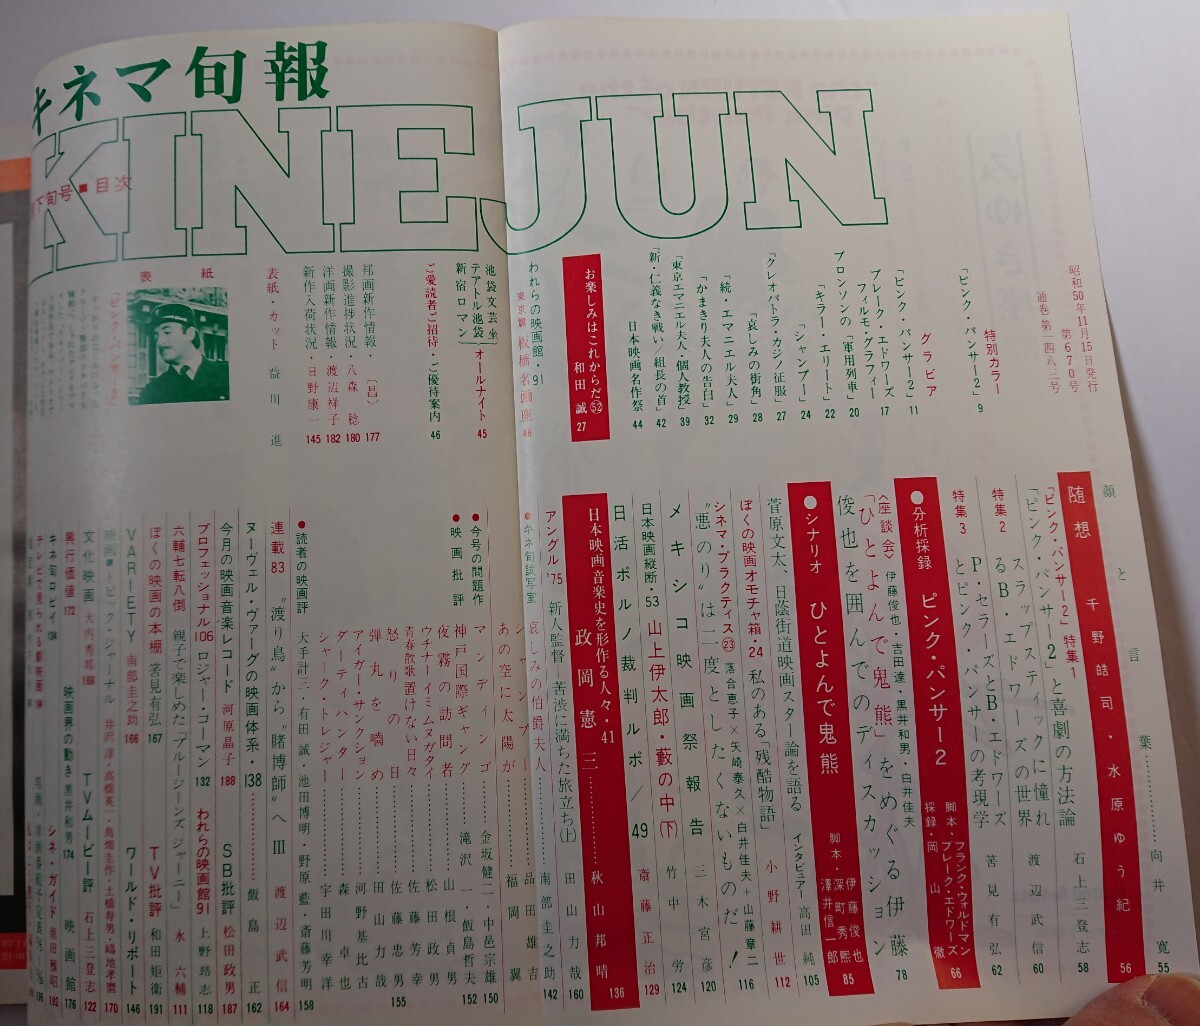 キネマ旬報
KINEJUN
下旬号■目次
昭和50年11月15日発行
第670号
通巻第一四八三号
特別カラー
「ピンク・パンサー2」9
グラビア
「ピンク・パンサー2」11
ブレーク・エドワーズ フィルモ・グラフィー 17
ブロンソンの「軍用列車」20
「キラー・エリート」22
「シャンプー」24
「クレオパトラ・カジノ征服」27
「哀しみの街角」28
「続・エマニエル夫人」29
「かまきり夫人の告白」32
「東京エマニエル夫人・個人教授」39
「新・仁義なき戦い/組長の首」42
日本映画名作祭 44
お楽しみはこれからだ㊾
和田誠 27
われらの映画館・91
東京都 板橋名画座 48
池袋文芸坐
テアトル池袋
新宿ロマン
オールナイト 45
ご愛読者ご招待・ご優待案内 46
邦画新作情報・〔昌〕177
撮影進捗状況・八森 稔 180
洋画新作情報・渡辺祥子 182
新作入荷状況・日野康一 145
表紙・カット 益川 進
表紙
「ピンク・パンサー2」
顔と言葉………向井 寛 55
随想 千野皓司・水原ゆう紀 56
「ピンク・パンサー2」特集1
「ピンク・パンサー2」と喜劇の方法論 石上三登志 58
スラップスティックに憧れるB・エドワーズの世界 渡辺武信 60
特集2 P・セラーズとB・エドワーズ 筈見有弘 62
特集3 とピンク・パンサーの考現学
●分析採録 ピンク・パンサー2
脚本・フランク・ウォルドマン
ブレーク・エドワーズ
採録・岡山 徹 66
〈座談会〉伊藤俊也・吉田達・黒井和男・白井佳夫
「ひとよんで鬼熊」をめぐる伊藤俊也を囲んでのディスカッション 78
●シナリオ ひとよんで鬼熊
脚本 伊藤俊也
深町秀熙
澤井信一郎 85
菅原文太、日蔭街道映画スター論を語る インタビュアー 高田 純 105
ぼくの映画オモチャ箱・24 私のある「残酷物語」 小野耕世 112
シネマ・プラクティス㉓ 落合恵子×矢崎泰久×白井佳夫+山藤章二
“悪のり”は二度としたくないものだ! 116
メキシコ映画祭報告 三木宮彦 120
竹中 労 124
日本映画縦断・53 山上伊太郎・藪の中(下)
日活ポルノ裁判ルポ/49 斎藤正治 129
日本映画音楽史を形作る人々・41
政岡憲三……秋山邦晴 136
アングル'75 新人監督 苦渋に満ちた旅立ち(上) 田山力哉 160
●キネ旬試写室 哀しみの伯爵夫人……南部圭之助 142
シャンプー……品田雄吉
あの空に太陽が……福岡 翼
●今号の問題作 マンディンゴ……金坂健二・中邑宗雄 150
●映画批評 神戸国際ギャング……滝沢一・飯島哲夫 152
夜霧の訪問者……山根貞男
ウチナーイミムヌガタイ……松田政男
青春散歌置けない日々……佐藤芳幸
怒りの日……佐藤忠男 155
弾丸を噛め……田山力哉
アイガー・サンクション……河野基比古
ダーティハンター……森 卓也
シャーク・トレジャー……宇田川幸洋
●読者の映画評 大手計三・有田誠・池田博明・野原藍・斎藤芳明 158
連載83 “渡り鳥”から“賭博師”へ Ⅲ 渡辺武信 164
ヌーヴェル・ヴァーグの映画体系・138……飯島 正 162
今月の映画音楽レコード 河原晶子 188
SB批評 松田政男 187
プロフェッショナル106 ロジャ・コーマン 132
われらの映画館91 上野昂志 118
六輔七転八倒 親子で楽しめた「ブルージーンズ ジャーニー」永 六輔 111
ぼくの映画の本棚 筈見有弘 167
TV批評 和田矩衛 191
VARIETY 南部圭之助 166
ワールド・リポート 146
映画■トピック・ジャーナル 井沢淳・高橋英一・鳥畑圭作・土橋寿男・嶋地孝麿 170
文化映画 大内秀邦 168
TVムービー評 石上三登志 122
興行価値 172
映画界の動き 黒井和男 174
映画館 176
キネ旬ロビイ 194
シネ・ガイド 原田雅昭 192